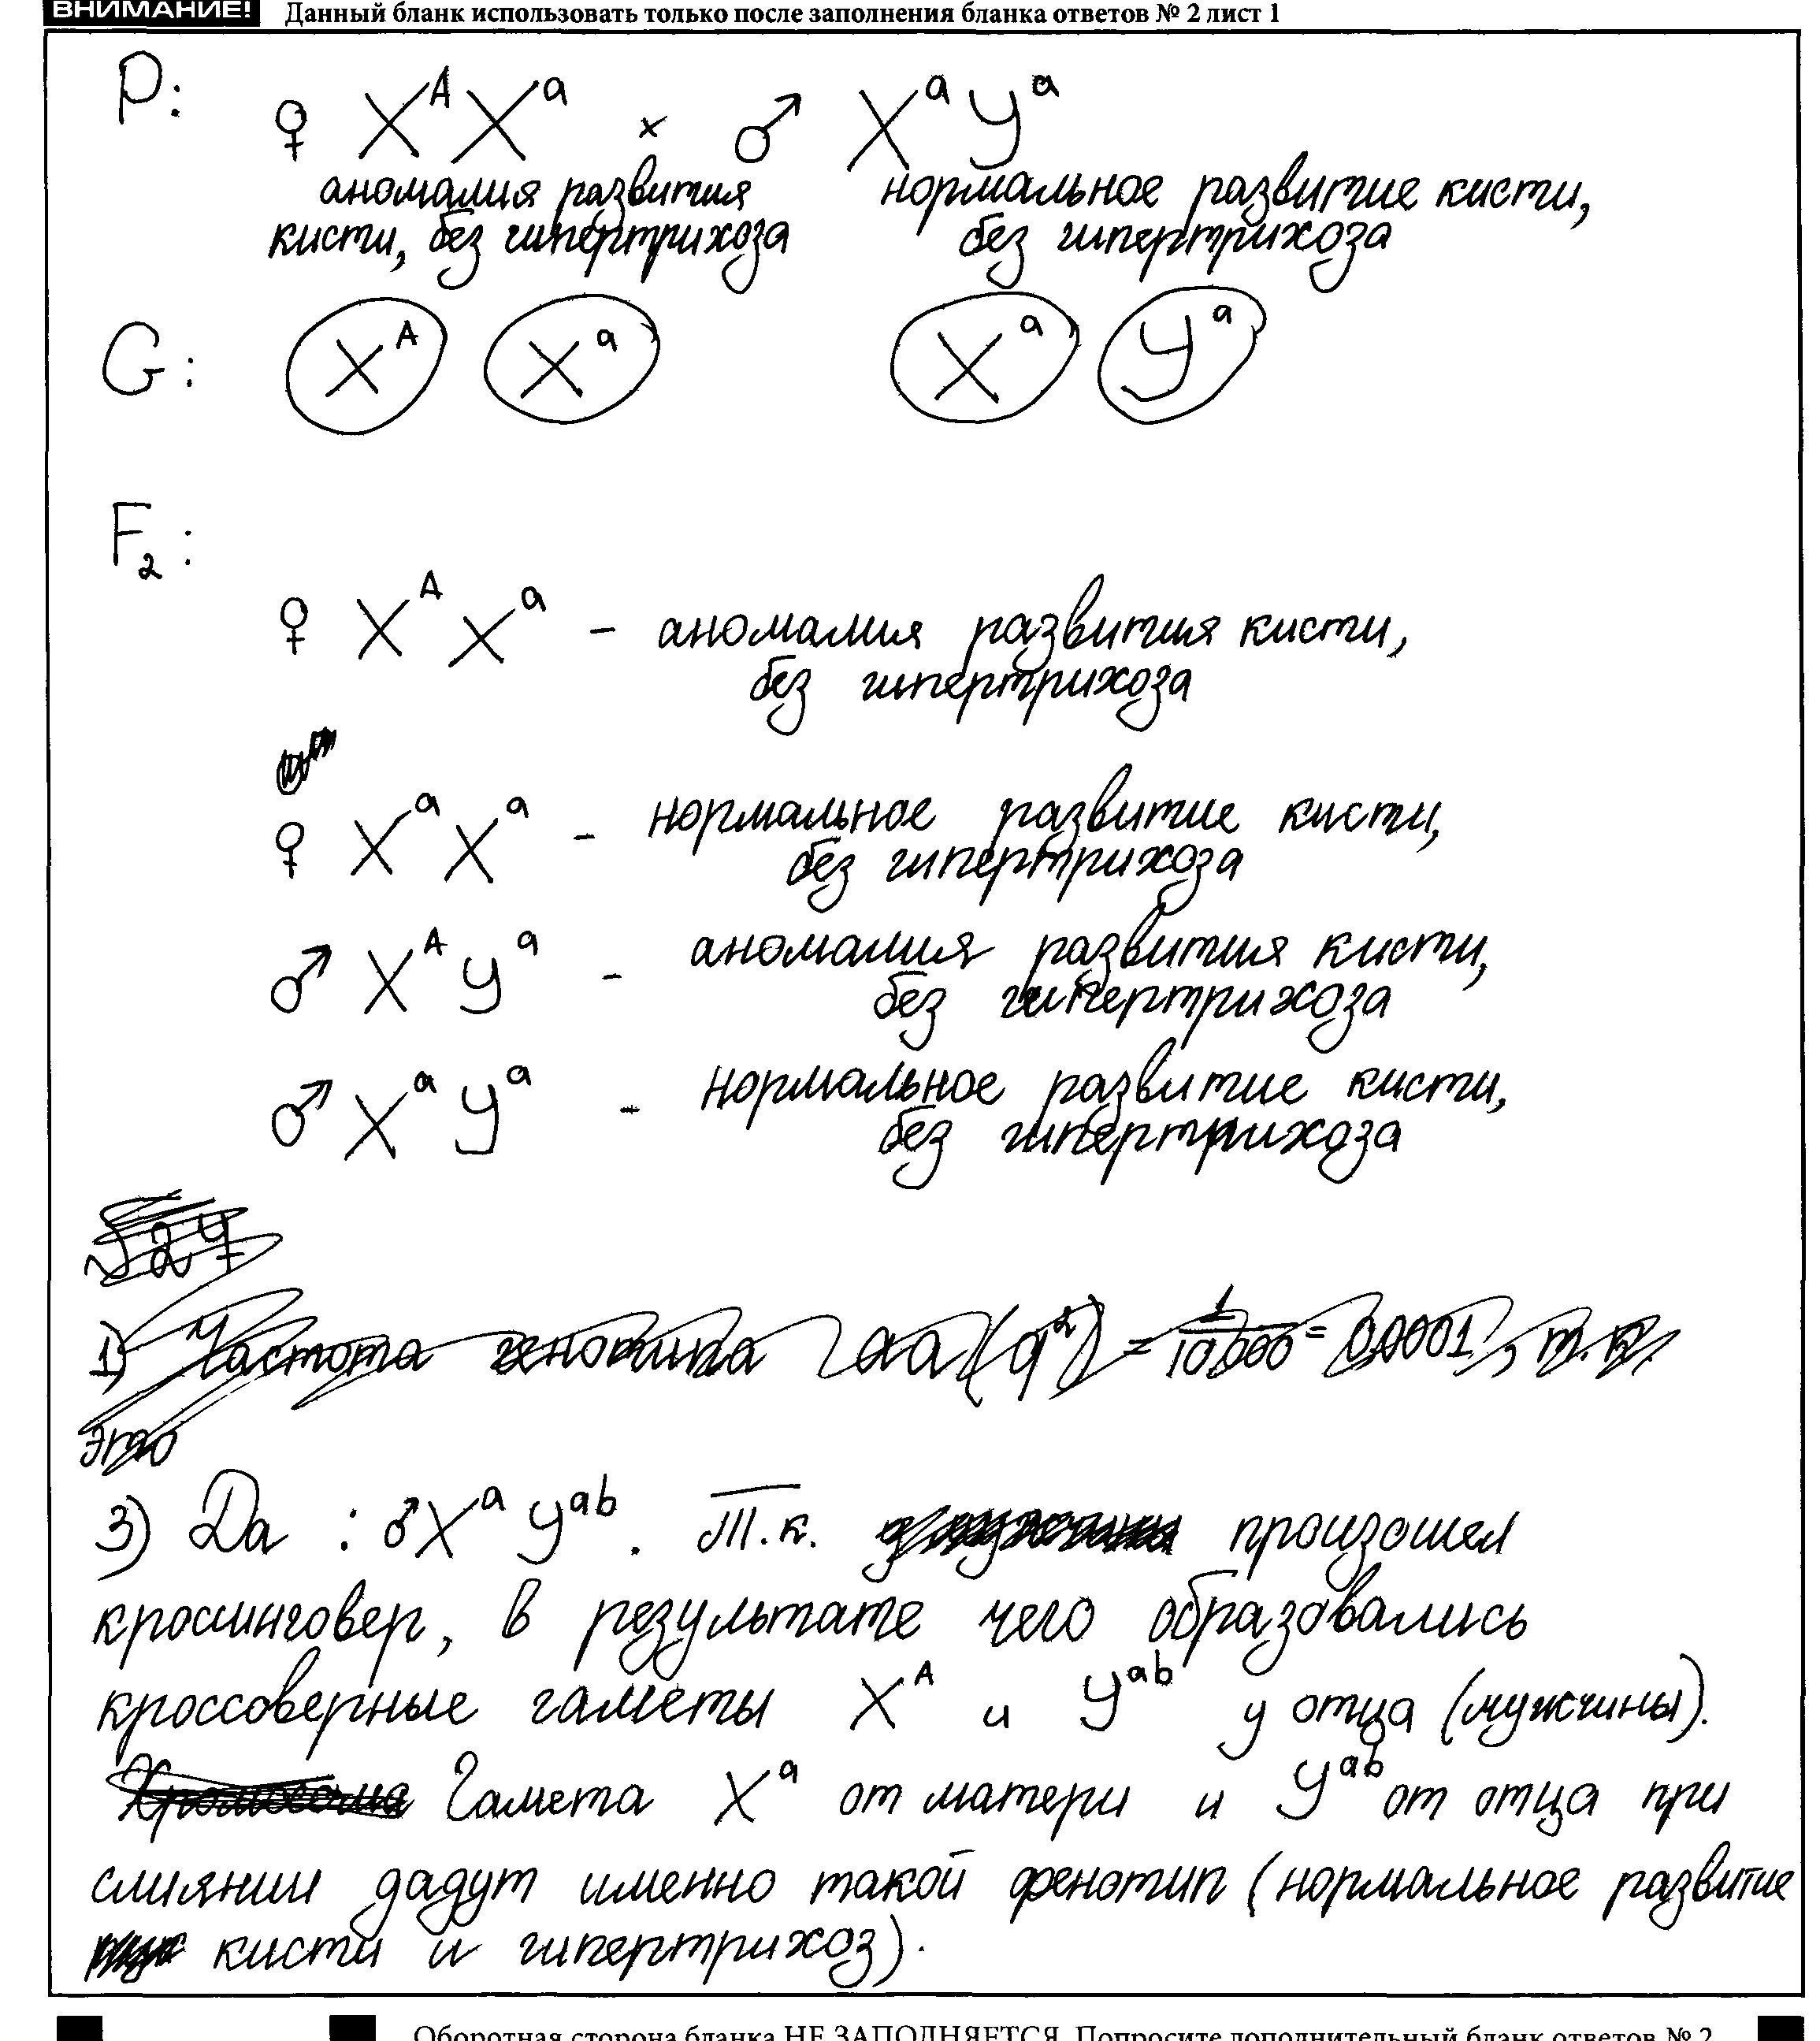 ВНИМАНИЕ! Данный бланк использовать только после заполнения бланка ответов № 2 лист 1
P: ♀ X^A X^a × ♂ X^a Y^a
аномалия развития кисти, без гипертрихоза
нормальное развитие кисти, без гипертрихоза
G: X^A X^a X^a Y^a
F₂:
♀ X^A X^a – аномалия развития кисти,
без гипертрихоза
♀ X^a X^a – нормальное развитие кисти,
без гипертрихоза
♂ X^A Y^a – аномалия развития кисти,
без гипертрихоза
♂ X^a Y^a – нормальное развитие кисти,
без гипертрихоза
1) Частота генотипа aa (q²) = 1/10.000 = 0,0001, т.к.
Это
3) Да : ♂X^a Y^ab. Т.к. произошел
кроссинговер, в результате чего образовались
кроссоверные гаметы X^A и Y^ab у отца (мужчины).
Гамета X^a от матери и Y^ab от отца при
слиянии дадут именно такой фенотип (нормальное развитие
кисти и гипертрихоз).
Оборотная сторона бланка НЕ ЗАПОЛНЯЕТСЯ. Попросите дополнительный бланк ответов № 2